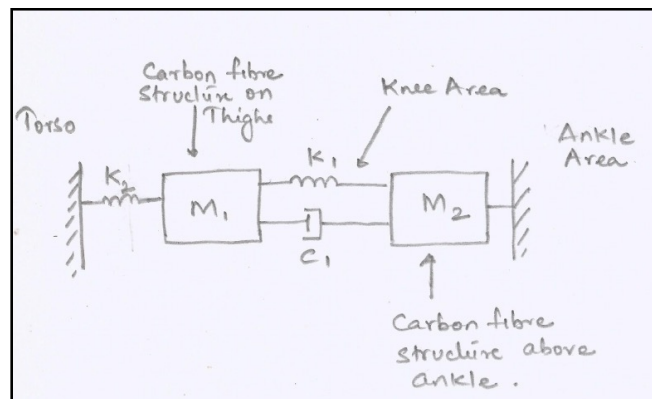 Carbon fibre
structure on
Thighs
Knee Area
Torso
Ankle
Area
K2
K1
M1
M2
C1
Carbon fibre
structure above
ankle.